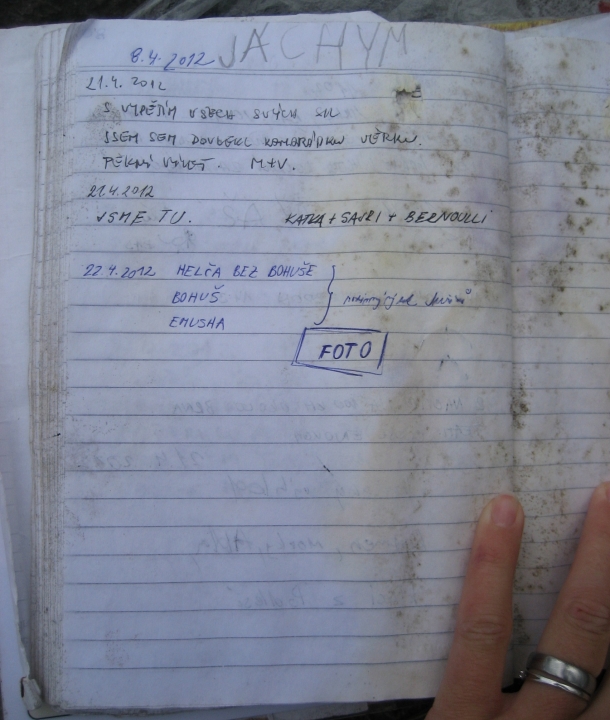 8.4.2012 JÁCHYM
21.4.2012
S VYPĚTÍM VŠECH SVÝCH SIL
JSEM SEM DOVLEKL KAMARÁDKU VĚRKU.
PĚKNÝ VÝLET. M+V.
21.4.2012
JSME TU. KATKA + SAJRI + BERNOULLI
22.4.2012 HELČA BEZ BOHUŠE
BOHUŠ
EMUSHA
FOTO